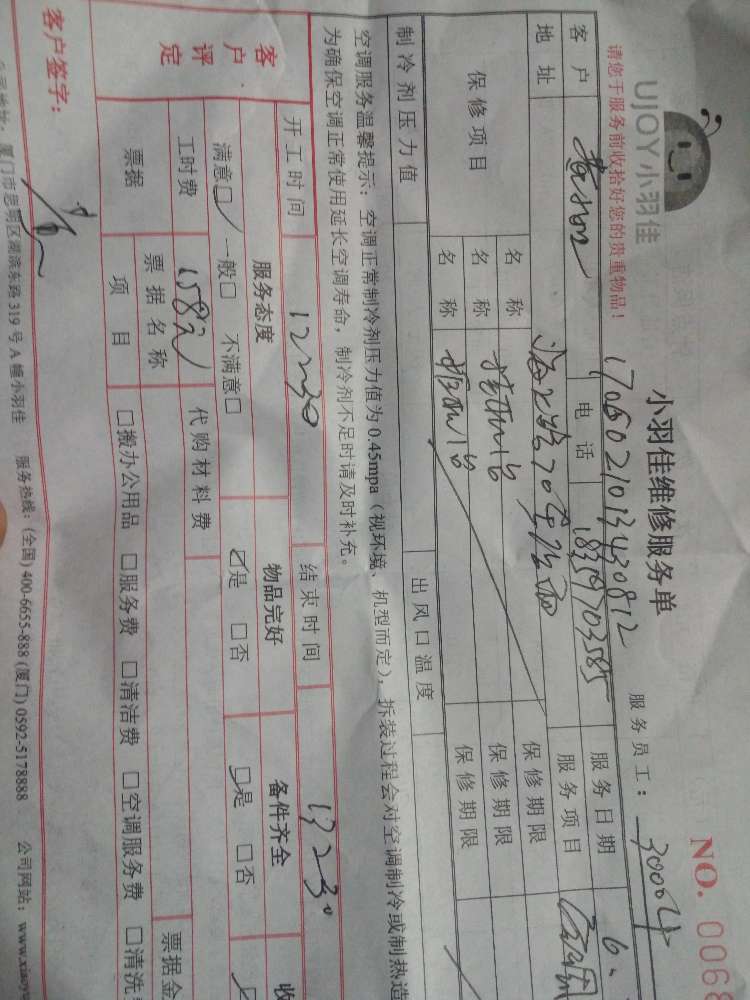 UJOY小羽佳
小羽佳维修服务单
NO. 0068
请您于服务前收拾好您的贵重物品！
1706021013430812
服务员工： 30004
客户 电话 18359703585 服务日期 6.
地址 服务项目
保修项目 名称 保修期限
名称 保修期限
名称 保修期限
制冷剂压力值 出风口温度
空调服务温馨提示：空调正常制冷剂压力值为0.45mpa（视环境、机型而定），拆装过程会对空调制冷或制热造
为确保空调正常使用延长空调寿命，制冷剂不足时请及时补充。
开工时间 12:30 结束时间 13:30
客户评定 服务态度 物品完好 备件齐全 收
满意□ 一般□ 不满意□ □是 □否 □是 □否
工时费 158元 代购材料费
票据 票据名称 票据金
项目 □搬办公用品 □服务费 □清洁费 □空调服务费 □清洗
客户签字：
公司地址：厦门市思明区湖滨东路319号A幢小羽佳 服务热线：(全国) 400-6655-888 (厦门) 0592-5178888 公司网站：www.xiaoyu